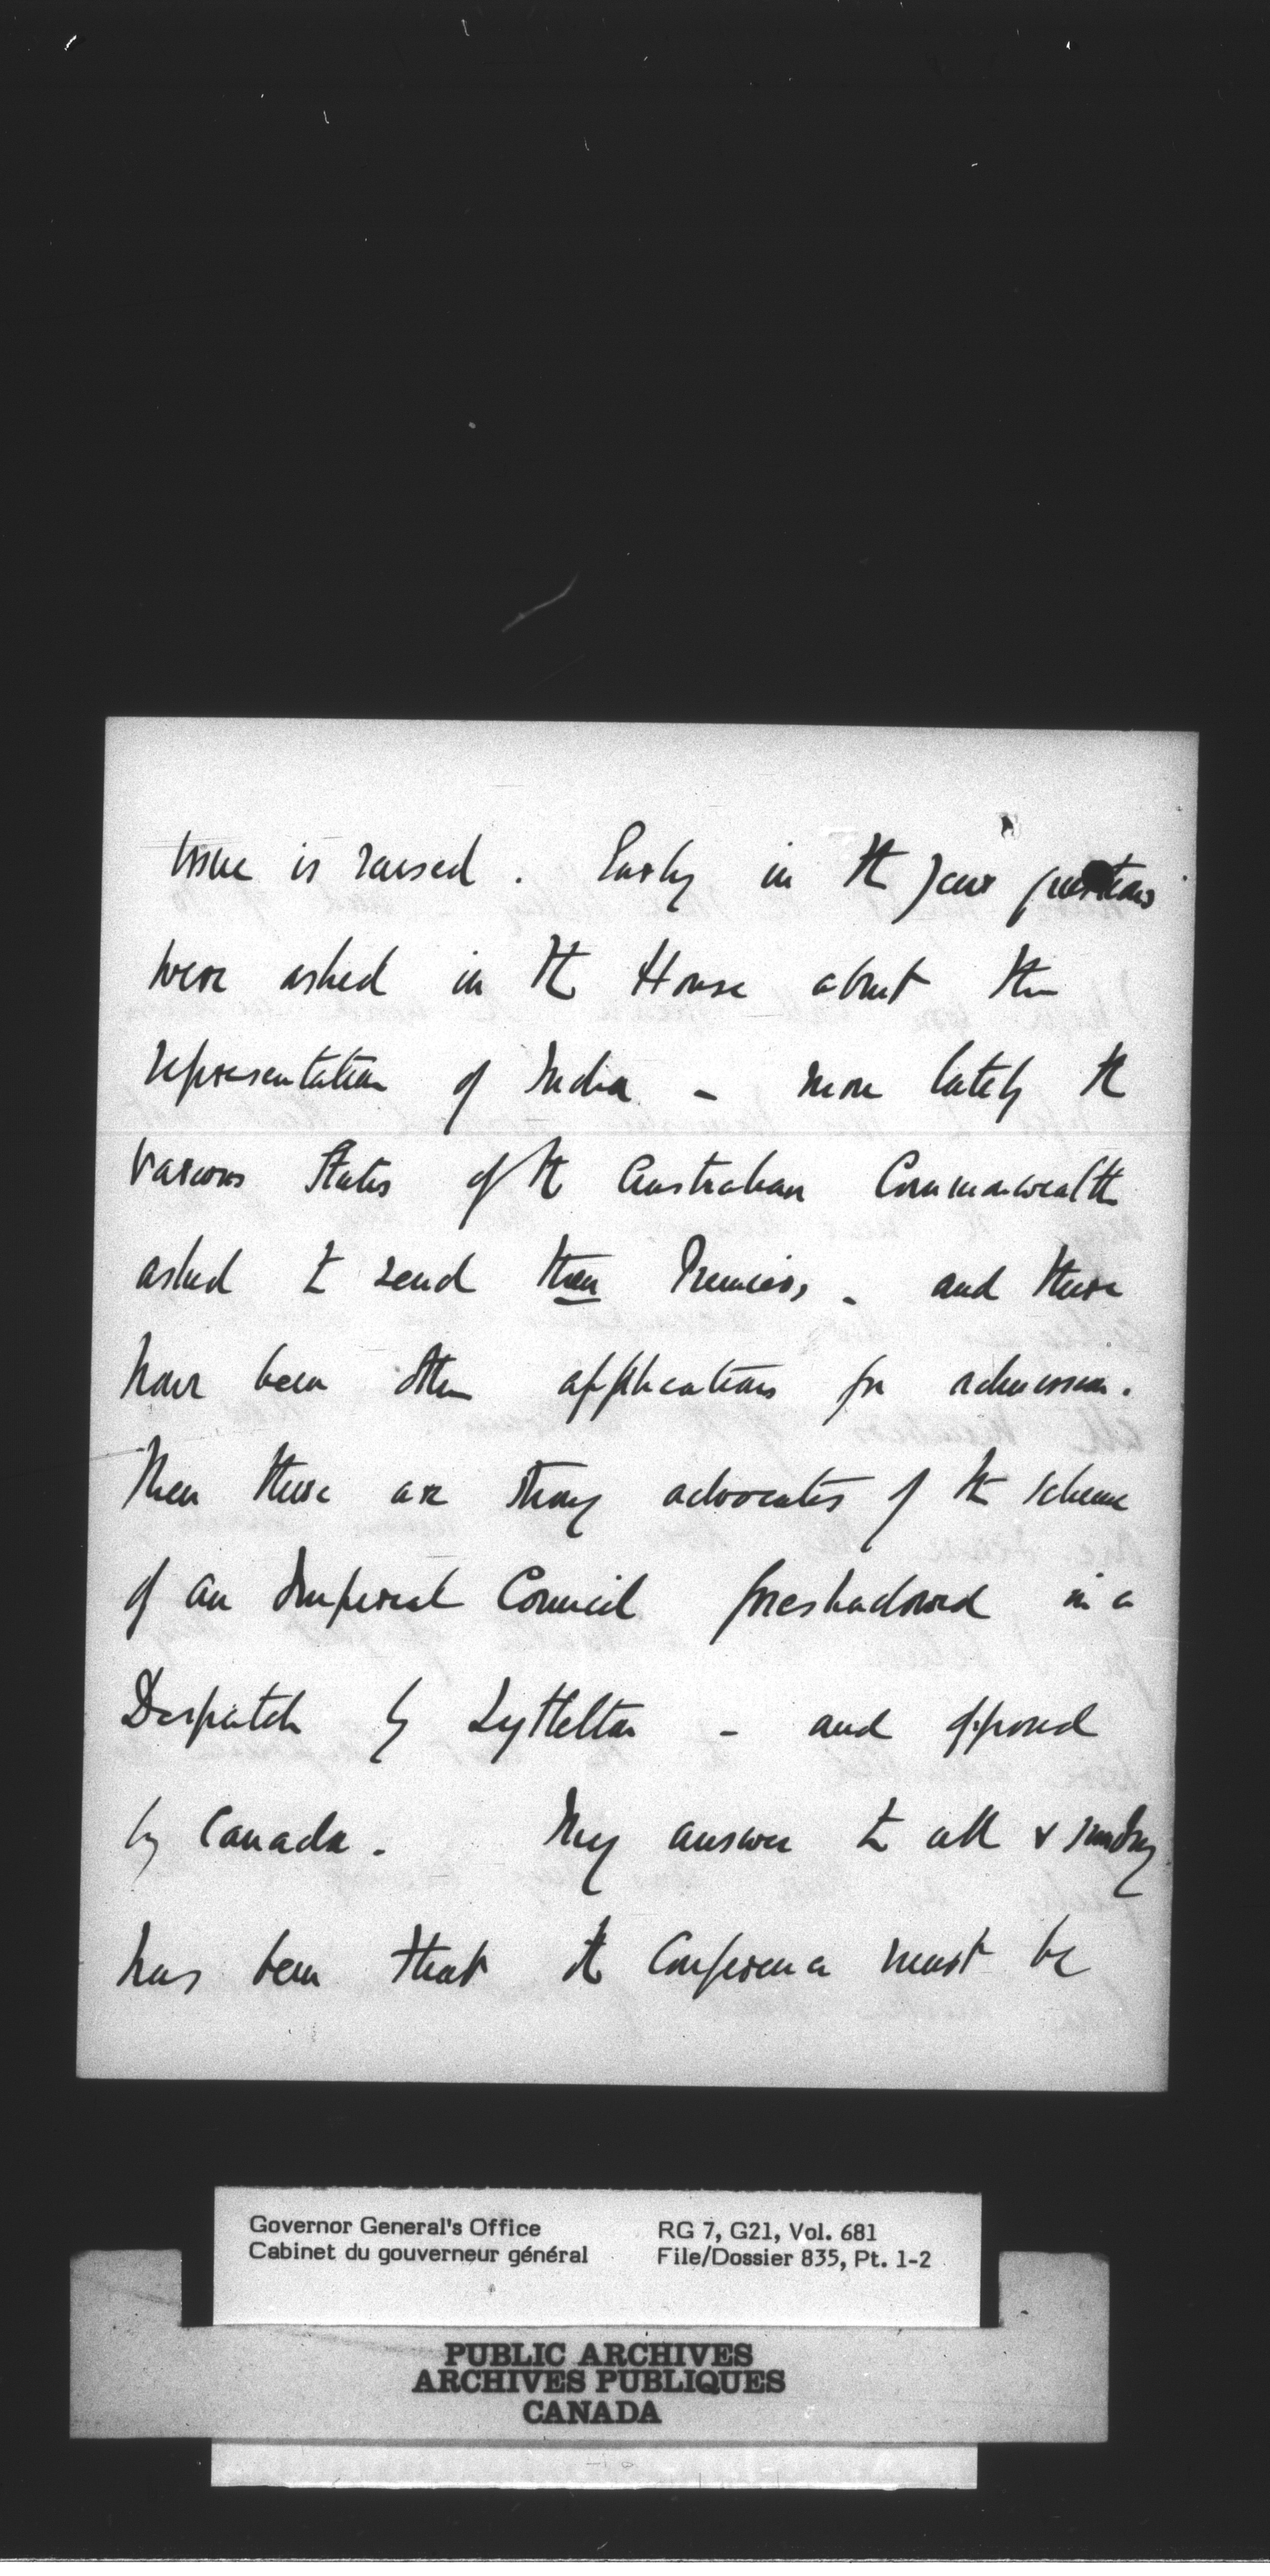 issue is raised. Early in the year questions
were asked in the House about the
representation of India - more lately the
various States of the Australian Commonwealth
asked to send their Premiers, - and there
have been other applications for admission.
Then there are strong advocates of the scheme
of an Imperial Council foreshadowed in a
Despatch by Lyttelton - and opposed
by Canada. My answer to all & sundry
has been that the Conference must be
Governor General's Office RG 7, G21, Vol. 681
Cabinet du gouverneur général File/Dossier 835, Pt. 1-2
PUBLIC ARCHIVES
ARCHIVES PUBLIQUES
CANADA